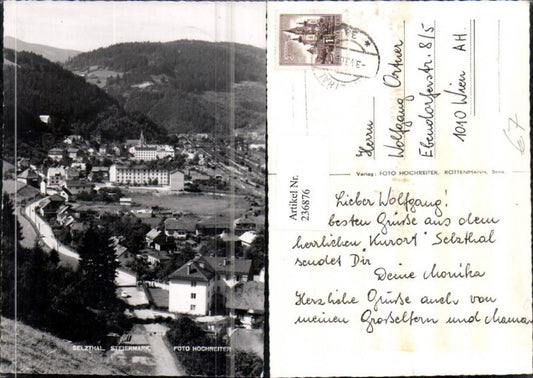 SELZTHAL, STEIERMARK
FOTO HOCHREITER
Herrn
Wolfgang Ortner
Ebendorferstr. 8/5
1010 Wien AH.
Verlag: FOTO HOCHREITER, ROTTENMANN,
Artikel Nr.
236876
Lieber Wolfgang!
besten Grüße aus dem
herrlichen "Kurort" Selzthal
sendet Dir
Deine Monika
Herzliche Grüße auch von
meinen Großeltern und Mama
67